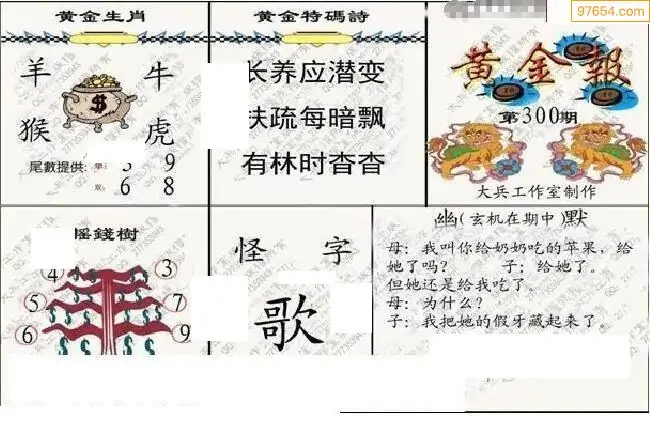 97654.com
黄金生肖
羊 牛
猴 虎
尾數提供:
9
6 8
黄金特碼詩
长养应潜变
扶疏每暗飘
有林时杳杳
黄金報
第300期
大兵工作室制作
摇錢樹
4 3
5 7
6 9
怪 字
歌
幽(玄机在期中)默
母:我叫你给奶奶吃的苹果,给
她了吗? 子:给她了。
但她还是给我吃了。
母:为什么?
子:我把她的假牙藏起来了